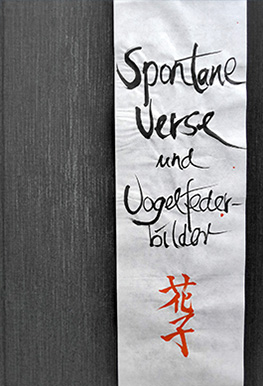 Spontane
Verse
und
Vogelfeder-
bilder
花子